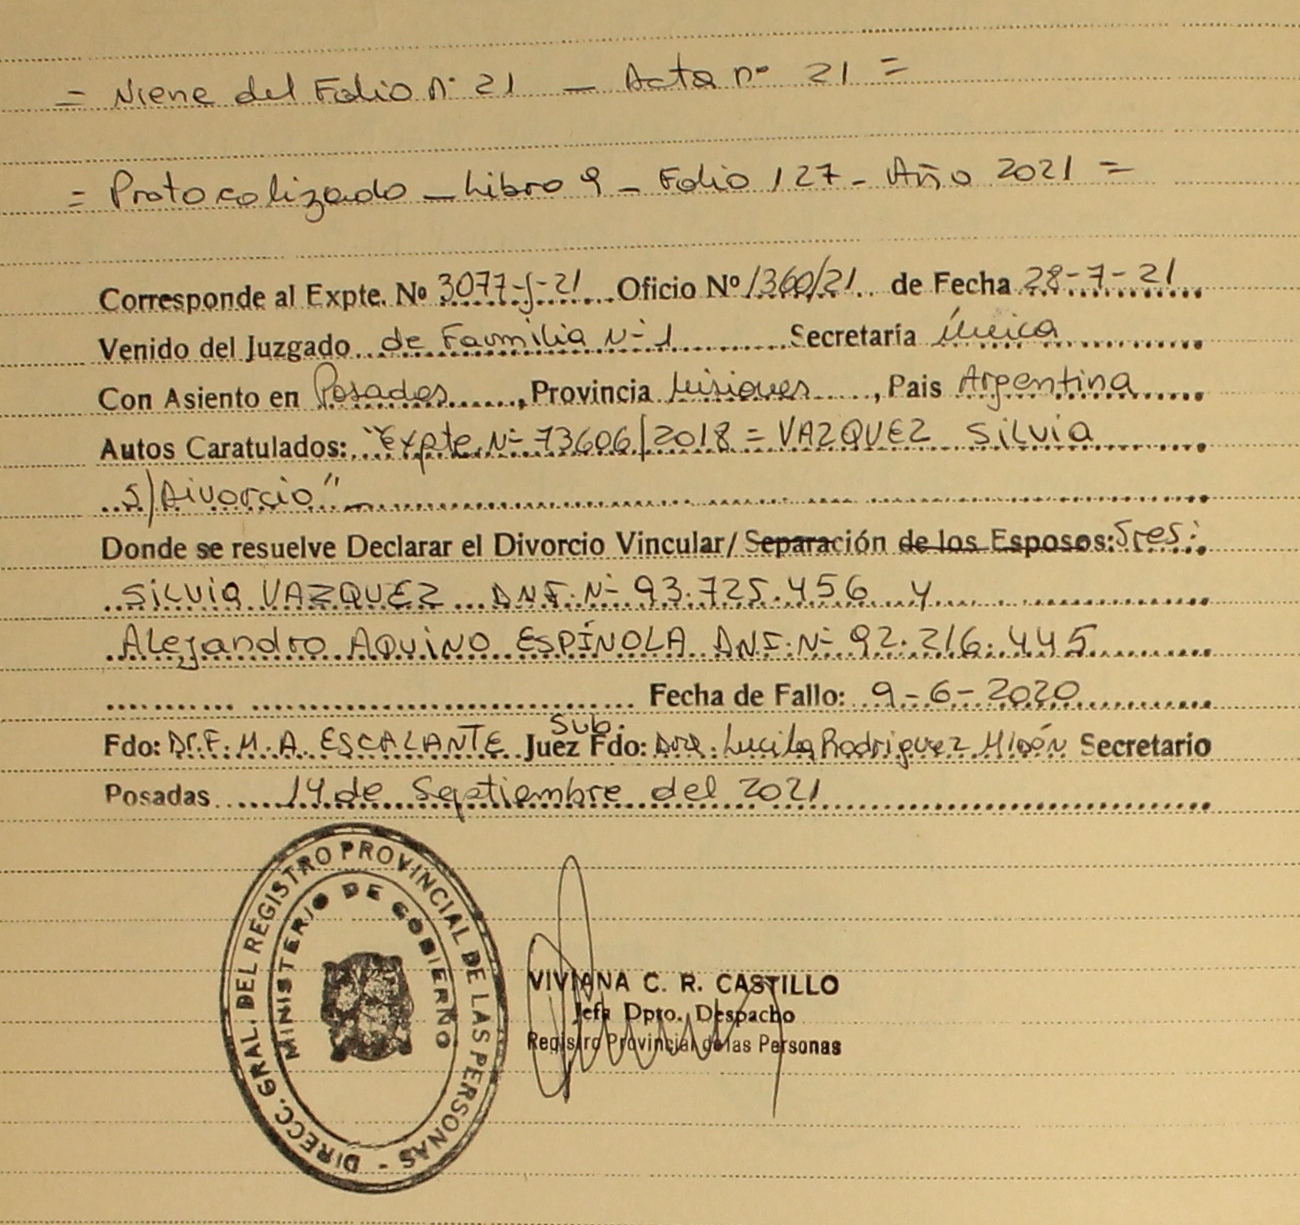 = Viene del Folio Nº 21 _ Acta nº 21 =
= Protocolizado _ Libro 9 _ Folio 127 - Año 2021 =
Corresponde al Expte. Nº 3077-J-21 Oficio Nº 1360/21 de Fecha 28-7-21
Venido del Juzgado de Familia Nº 1 Secretaría Única
Con Asiento en Posadas, Provincia Misiones, Pais Argentina
Autos Caratulados: "Expte. Nº 73606/2018 = VAZQUEZ Silvia
S/Divorcio"
Donde se resuelve Declarar el Divorcio Vincular/ Separación de los Esposos: Sres:
Silvia VAZQUEZ DNI. Nº 93.725.456 y
Alejandro AQUINO ESPÍNOLA DNI. Nº 92.216.445
Fecha de Fallo: 9-6-2020
Sub.
Fdo: Dr. F. M. A. ESCALANTE Juez Fdo: Dra. Lucila Rodriguez Secretario
Posadas 14 de Septiembre del 2021
DIRECC. GRAL. DEL REGISTRO PROVINCIAL DE LAS PERSONAS -
MINISTERIO DE GOBIERNO
VIVIANA C. R. CASTILLO
Jefa Dpto. Despacho
Registro Provincial de las Personas